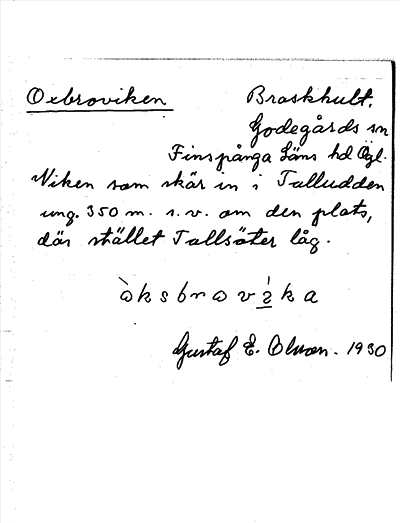 Oxbroviken Braskhult.
Godegårds sn
Finspånga Läns hd Ögl.
Viken som skär in i Talludden
ung. 350 m. s.v. om den plats,
där stället Tallsäter låg.
Gustaf E. Olsson. 1930